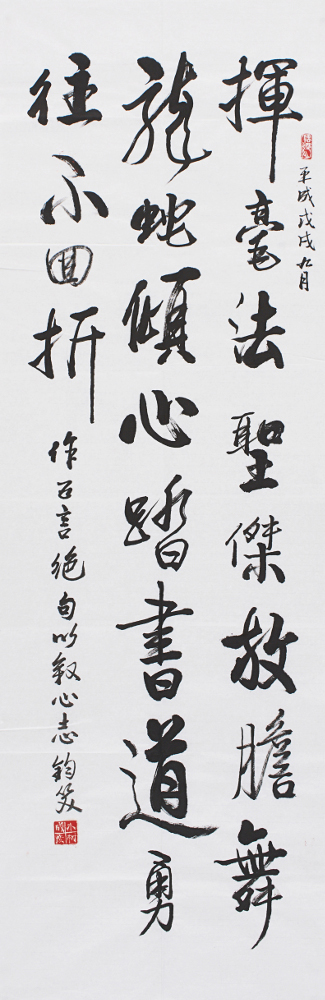 平成戊戌九月
揮毫法聖傑放膽舞
龍蛇傾心踏書道勇
往不回折
作五言絶句以叙心志